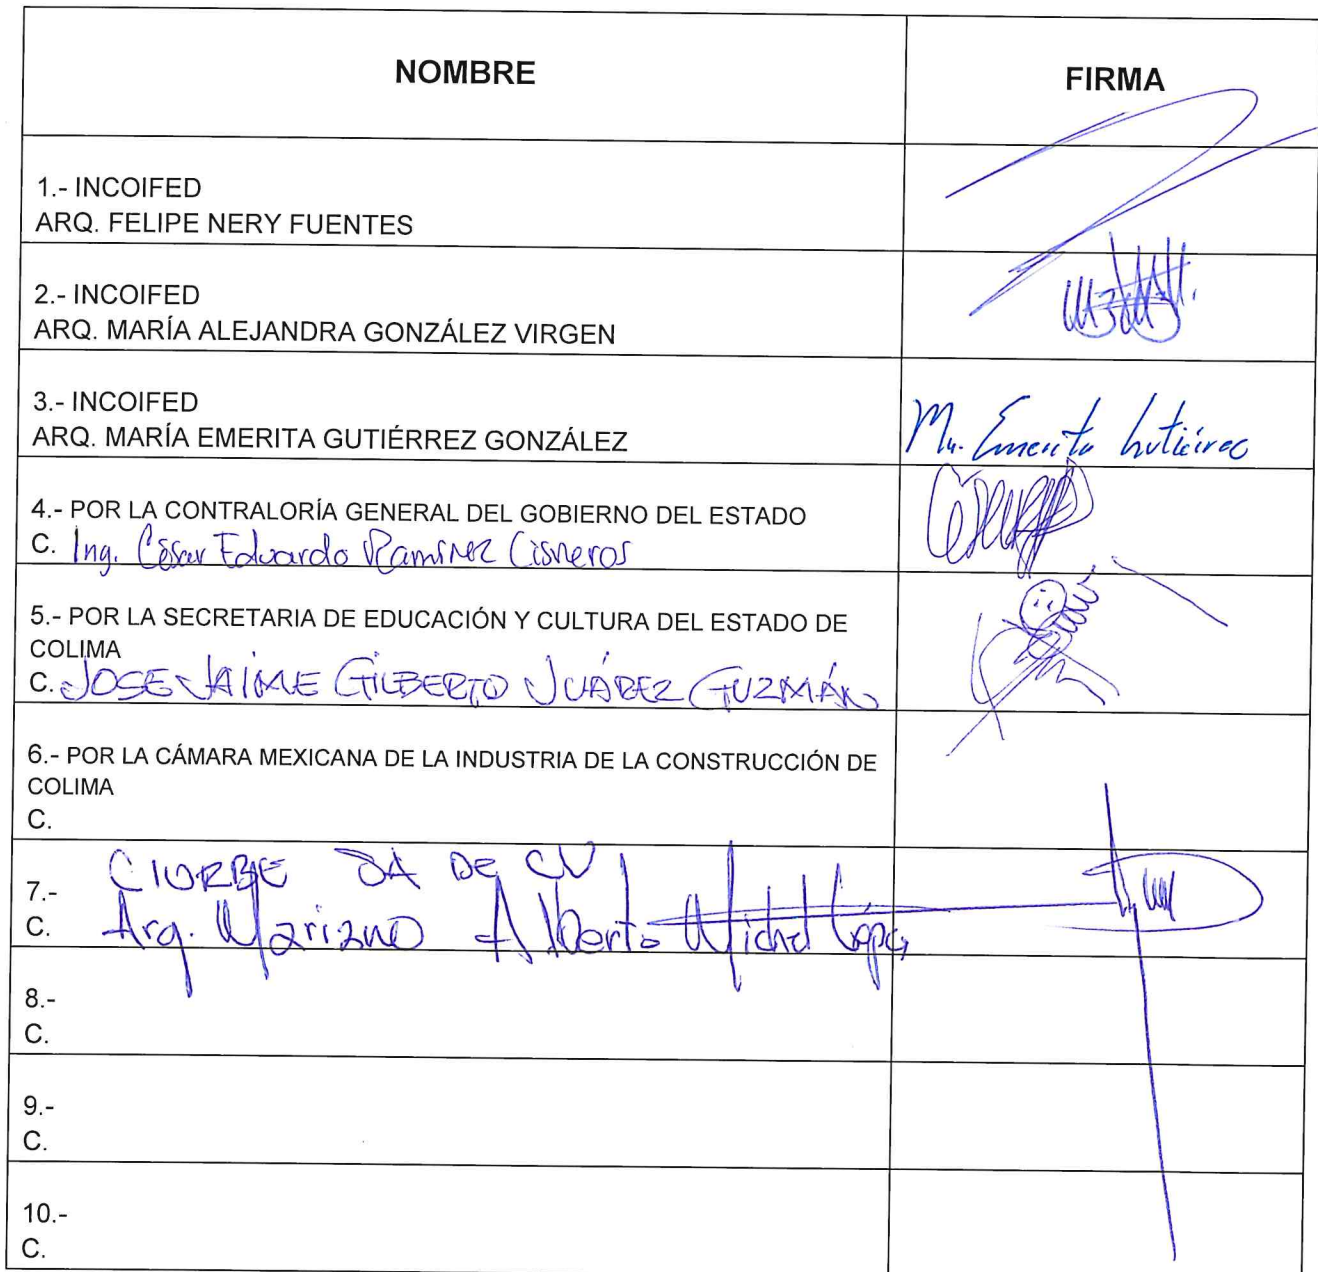 NOMBRE
FIRMA
1.- INCOIFED
ARQ. FELIPE NERY FUENTES
2.- INCOIFED
ARQ. MARÍA ALEJANDRA GONZÁLEZ VIRGEN
3.- INCOIFED
ARQ. MARÍA EMERITA GUTIÉRREZ GONZÁLEZ
Ma. Emerita Gutiérrez
4.- POR LA CONTRALORÍA GENERAL DEL GOBIERNO DEL ESTADO
C. Ing. César Eduardo Ramírez Cisneros
5.- POR LA SECRETARIA DE EDUCACIÓN Y CULTURA DEL ESTADO DE
COLIMA
C. JOSE JAIME GILBERTO JUÁREZ GUZMÁN
6.- POR LA CÁMARA MEXICANA DE LA INDUSTRIA DE LA CONSTRUCCIÓN DE
COLIMA
C.
7.- CIURBE SA DE CV
C. Arq. Mariano Alberto Michel López
8.-
C.
9.-
C.
10.-
C.